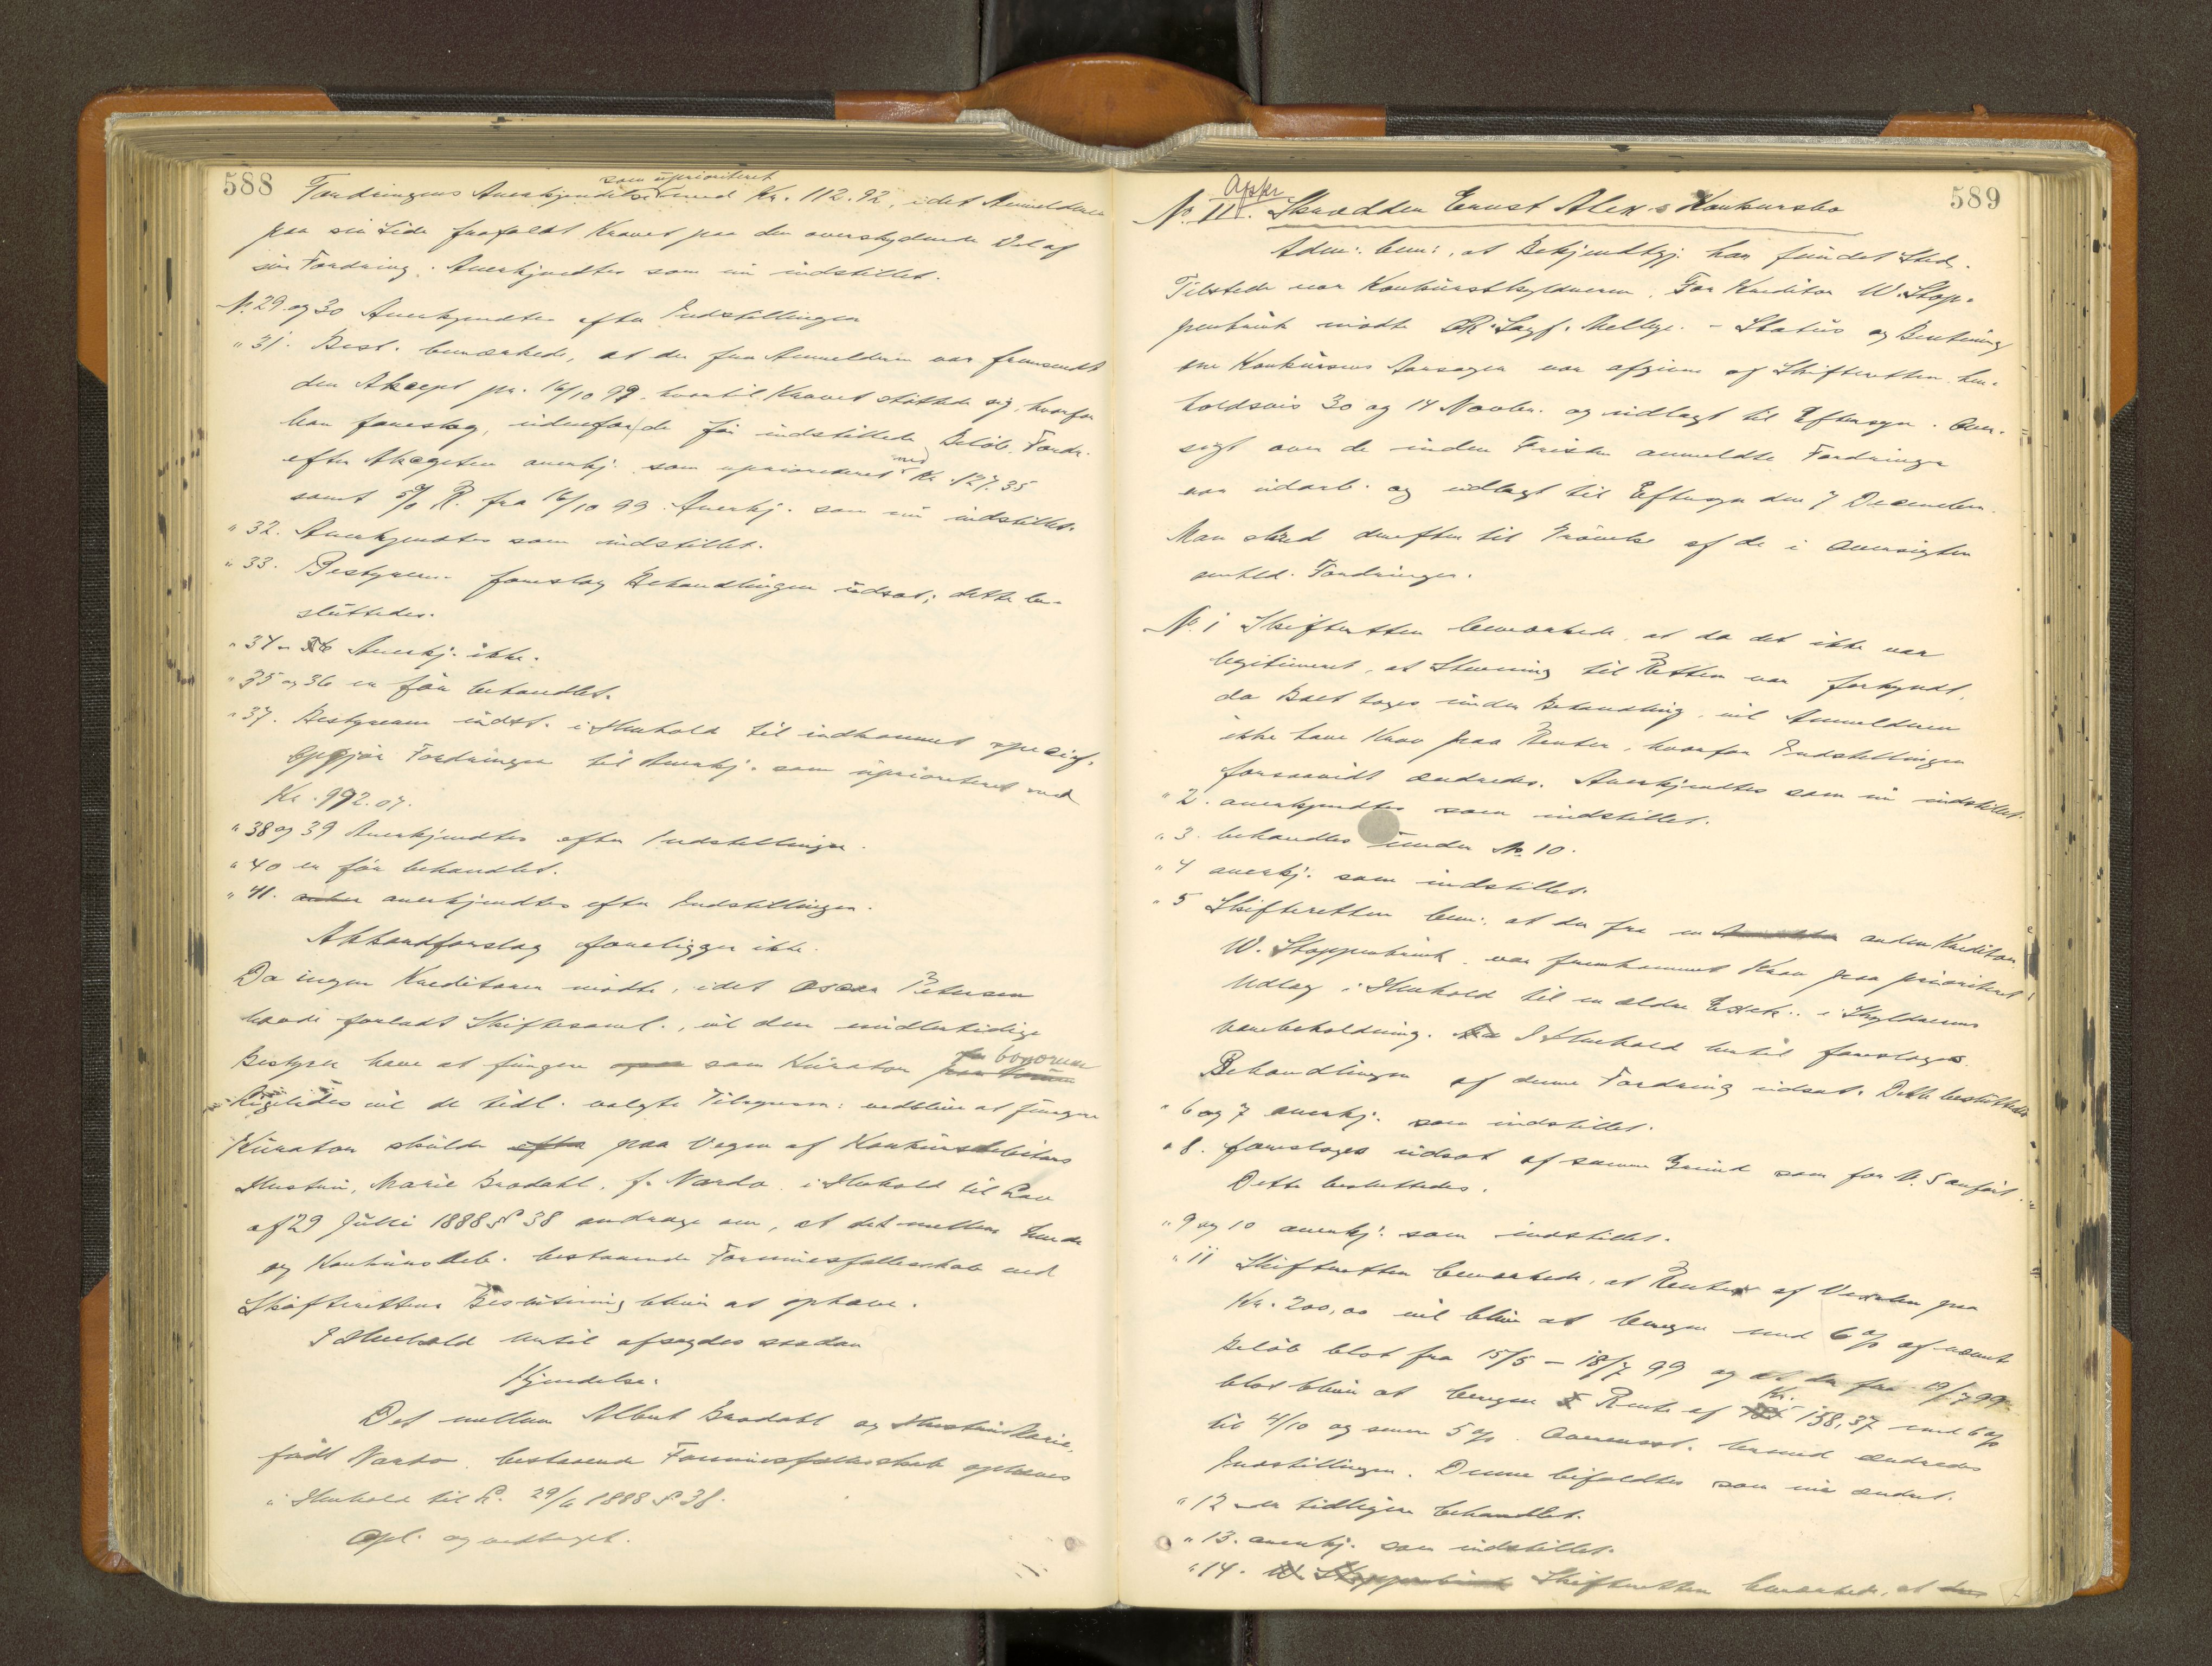 588
som uprioriteret
Fordringens Anerkjendelse med Kr. 112.92, idet Anmelderen
paa sin Side frafaldt Kravet paa den overskydende Del af
sin Fordring. Anerkjendtes som nu indstillet.
No. 29 og 30 Anerkjendtes efter Indstillingen
" 31. Best. bemærkede, at der fra Anmelderen var fremsendt
den Akcept pr. 16/10 99. hvortil Kravet støttede sig, hvorfor
han foreslog, udenfor de før indstillede Beløb, Fordr.
efter Akcepten anerkj. som uprioriteret med Kr. 127.35
samt 5% R. fra 16/10 99. Anerkj. som nu indstillet.
" 32. Anerkjendtes som indstillet.
" 33. Bestyreren foreslog Behandlingen udsat; dette be-
sluttedes.
" 34 Anerkj. ikke.
" 35 og 36 er før behandlet.
" 37. Bestyreren indst. i Henhold til indkommet specif.
Opgjør Fordringen til Anerkj. som uprioriteret med
Kr. 992.07.
" 38 og 39 Anerkjendtes efter Indstillingen.
" 40 er før behandlet.
" 41. anerkjendtes efter Indstillingen.
Akkordforslag foreligger ikke.
Da ingen Kreditorer mødte, idet Oscar Petersen
havde forladt Skiftesaml., vil den midlertidige
Bestyrer have at fungere som Kurator bonorum
Ligeledes vil de tidl. valgte Tilsynsm: vedblive at fungere
Kurator skulde paa Vegne af Konkursdebitors
Hustru, Marie Brodahl, f. Nardo i Henhold til Lov
af 29 Juni 1888 § 38 andrage om, at det mellem hende
og Konkursdeb. bestaaende Formuesfællesskab ved
Skifterettens Beslutning bliver at ophæve.
I Henhold hertil afsagdes saadan
Kjendelse:
Det mellem Albert Brodahl og Hustru Marie,
født Nardo bestaaende Formuesfællesskab ophæves
i Henhold til L. 29/6 1888 § 38.
Opl. og vedtaget.
589
No. 11. Skrædder Ernst Alex.s Konkursbo
Adm: bem:, at Bekjendtgj. har fundet Sted.
Tilstede var Konkursskyldneren. For Kreditor W. Stop-
penbrink mødte O.R. Sagf. Mellbye. - Status og Beretning
om Konkursens Aarsager var afgivne af Skifteretten hen-
holdsvis 30 og 14 Novbr. og udlagt til Eftersyn. Over-
sigt over de inden Fristen anmeldte Fordringer
var udarb. og udlagt til Eftersyn den 7 December.
Man skred derefter til Prøvelse af de i Oversigten
omhld. Fordringer.
No. 1 Skifteretten bemærkede, at da det ikke var
legitimeret, at Stevning til Retten var forkyndt,
da Boet toges under Behandling, vil Anmelderen
ikke have Krav paa Renter, hvorfor Indstillingen
forsaavidt ændredes. Anerkjendtes som nu indstillet.
" 2. anerkjendtes som indstillet.
" 3. behandles under No. 10.
" 4 anerkj. som indstillet.
" 5 Skifteretten bem: at der fra en anden Kreditor
W. Stoppenbrink var fremkommet Krav paa prioriteret
Udlæg i Henhold til en ældre Exek.. i Skyldnerens
Varebeholdning. I Henhold hertil foreslages
Behandlingen af denne Fordring udsat. Dette besluttedes
" 6 og 7 anerkj. som indstillet.
" 8. foreslages udsat af samme Grund som for N. 5 anført.
Dette besluttedes.
" 9 og 10 anerkj. som indstillet.
" 11 Skifteretten bemærkede, at Renter af Vexelen paa
Kr. 200,00 vil blive at beregne med 6% af nævnte
Beløb blot fra 15/5 - 18/7 99 og at der fra 19/7 99
blot bliver at beregne Rente af Kr. 158,37 med 6%
til 4/10 og senere 5%. Overensst. hermed ændredes
Indstillingen. Denne bifaldtes som nu ændret.
" 12 er tidligere behandlet.
" 13. anerkj. som indstillet.
" 14. Skifteretten bemærkede, at